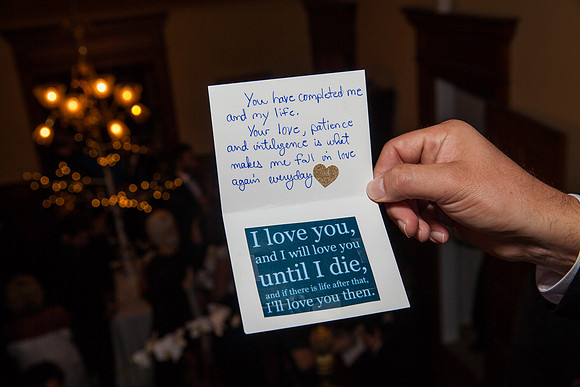 You have completed me
and my life.
Your love, patience
and intulgence is what
makes me fall in love
again everyday
I love you,
and I will love you
until I die,
and if there is life after that,
I'll love you then.